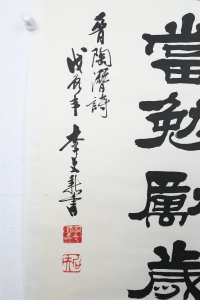 當勉勵歲
晉陶潛詩
戊年李書